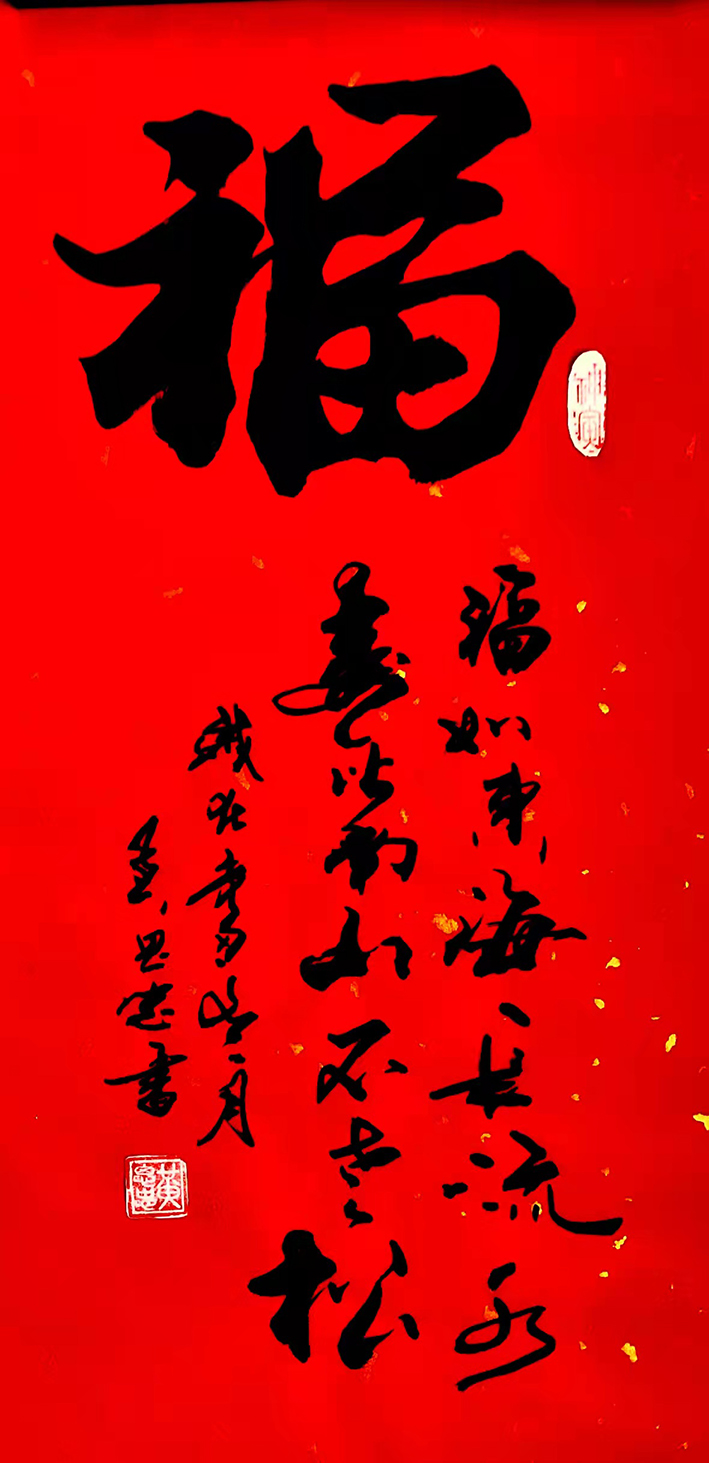 福
福如東海長流水
壽比南山不老松
歲在
月
黄思忠書
黄思忠